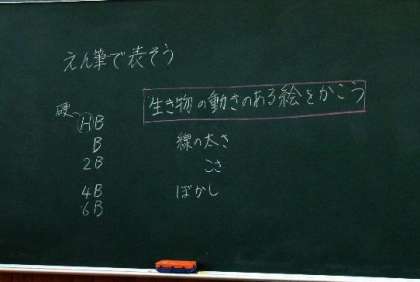 えん筆で表そう
生き物の動きのある絵をかこう
硬
HB
B
2B
4B
6B
線の太さ
こさ
ぼかし